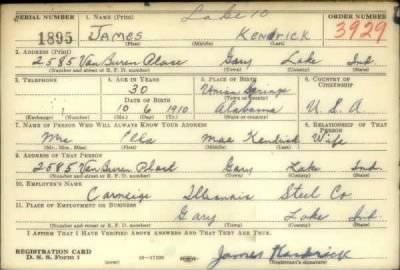 SERIAL NUMBER 1. NAME (Print) Lake 10 ORDER NUMBER
1895 JAMES KENDRICK 3929
(First) (Middle) (Last)
2. ADDRESS (Print)
2585 Van Buren Place Gary Lake Ind.
(Number and street or R. F. D. number) (Town) (County) (State)
3. TELEPHONE 4. AGE IN YEARS 5. PLACE OF BIRTH 6. COUNTRY OF CITIZENSHIP
30 Union Springs
DATE OF BIRTH (Town or county)
10 6 1910 Alabama U.S.A
(Exchange) (Number) (Mo.) (Day) (Yr.) (State or country)
7. NAME OF PERSON WHO WILL ALWAYS KNOW YOUR ADDRESS 8. RELATIONSHIP OF THAT PERSON
Mrs Ella Mae Kendrick Wife
(Mr., Mrs., Miss) (First) (Middle) (Last)
9. ADDRESS OF THAT PERSON
2585 Van Buren Place Gary Lake Ind.
(Number and street or R. F. D. number) (Town) (County) (State)
10. EMPLOYER'S NAME
Carneige Illinois Steel Co
11. PLACE OF EMPLOYMENT OR BUSINESS
Gary Lake Ind.
(Number and street or R. F. D. number) (Town) (County) (State)
I AFFIRM THAT I HAVE VERIFIED ABOVE ANSWERS AND THAT THEY ARE TRUE.
REGISTRATION CARD
D. S. S. Form 1 16—17105 James Kendrick
(Registrant's signature)